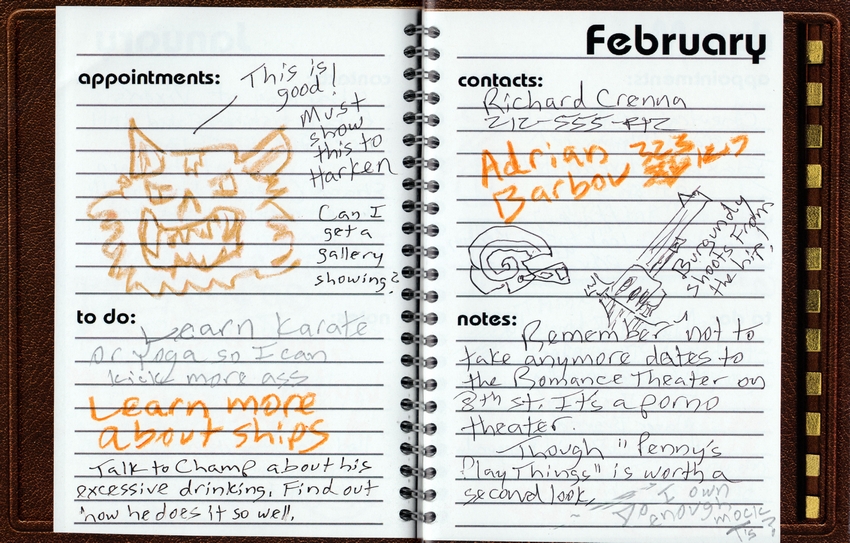 appointments:
This is
good!
Must
show
this to
Harken
Can I
get a
gallery
showing?
to do:
Learn karate
or yoga so I can
kick more ass
Learn more
about ships
Talk to Champ about his
excessive drinking. Find out
how he does it so well.
February
contacts:
Richard Crenna
212-555-
Adrian
Barbou
Burgundy
shoots from
the hip!
notes:
Remember not to
take anymore dates to
the Romance Theater on
8th st. It's a porno
theater.
Though "Penny's
Play Things" is worth a
second look.
Do I own
enough mock
T's?